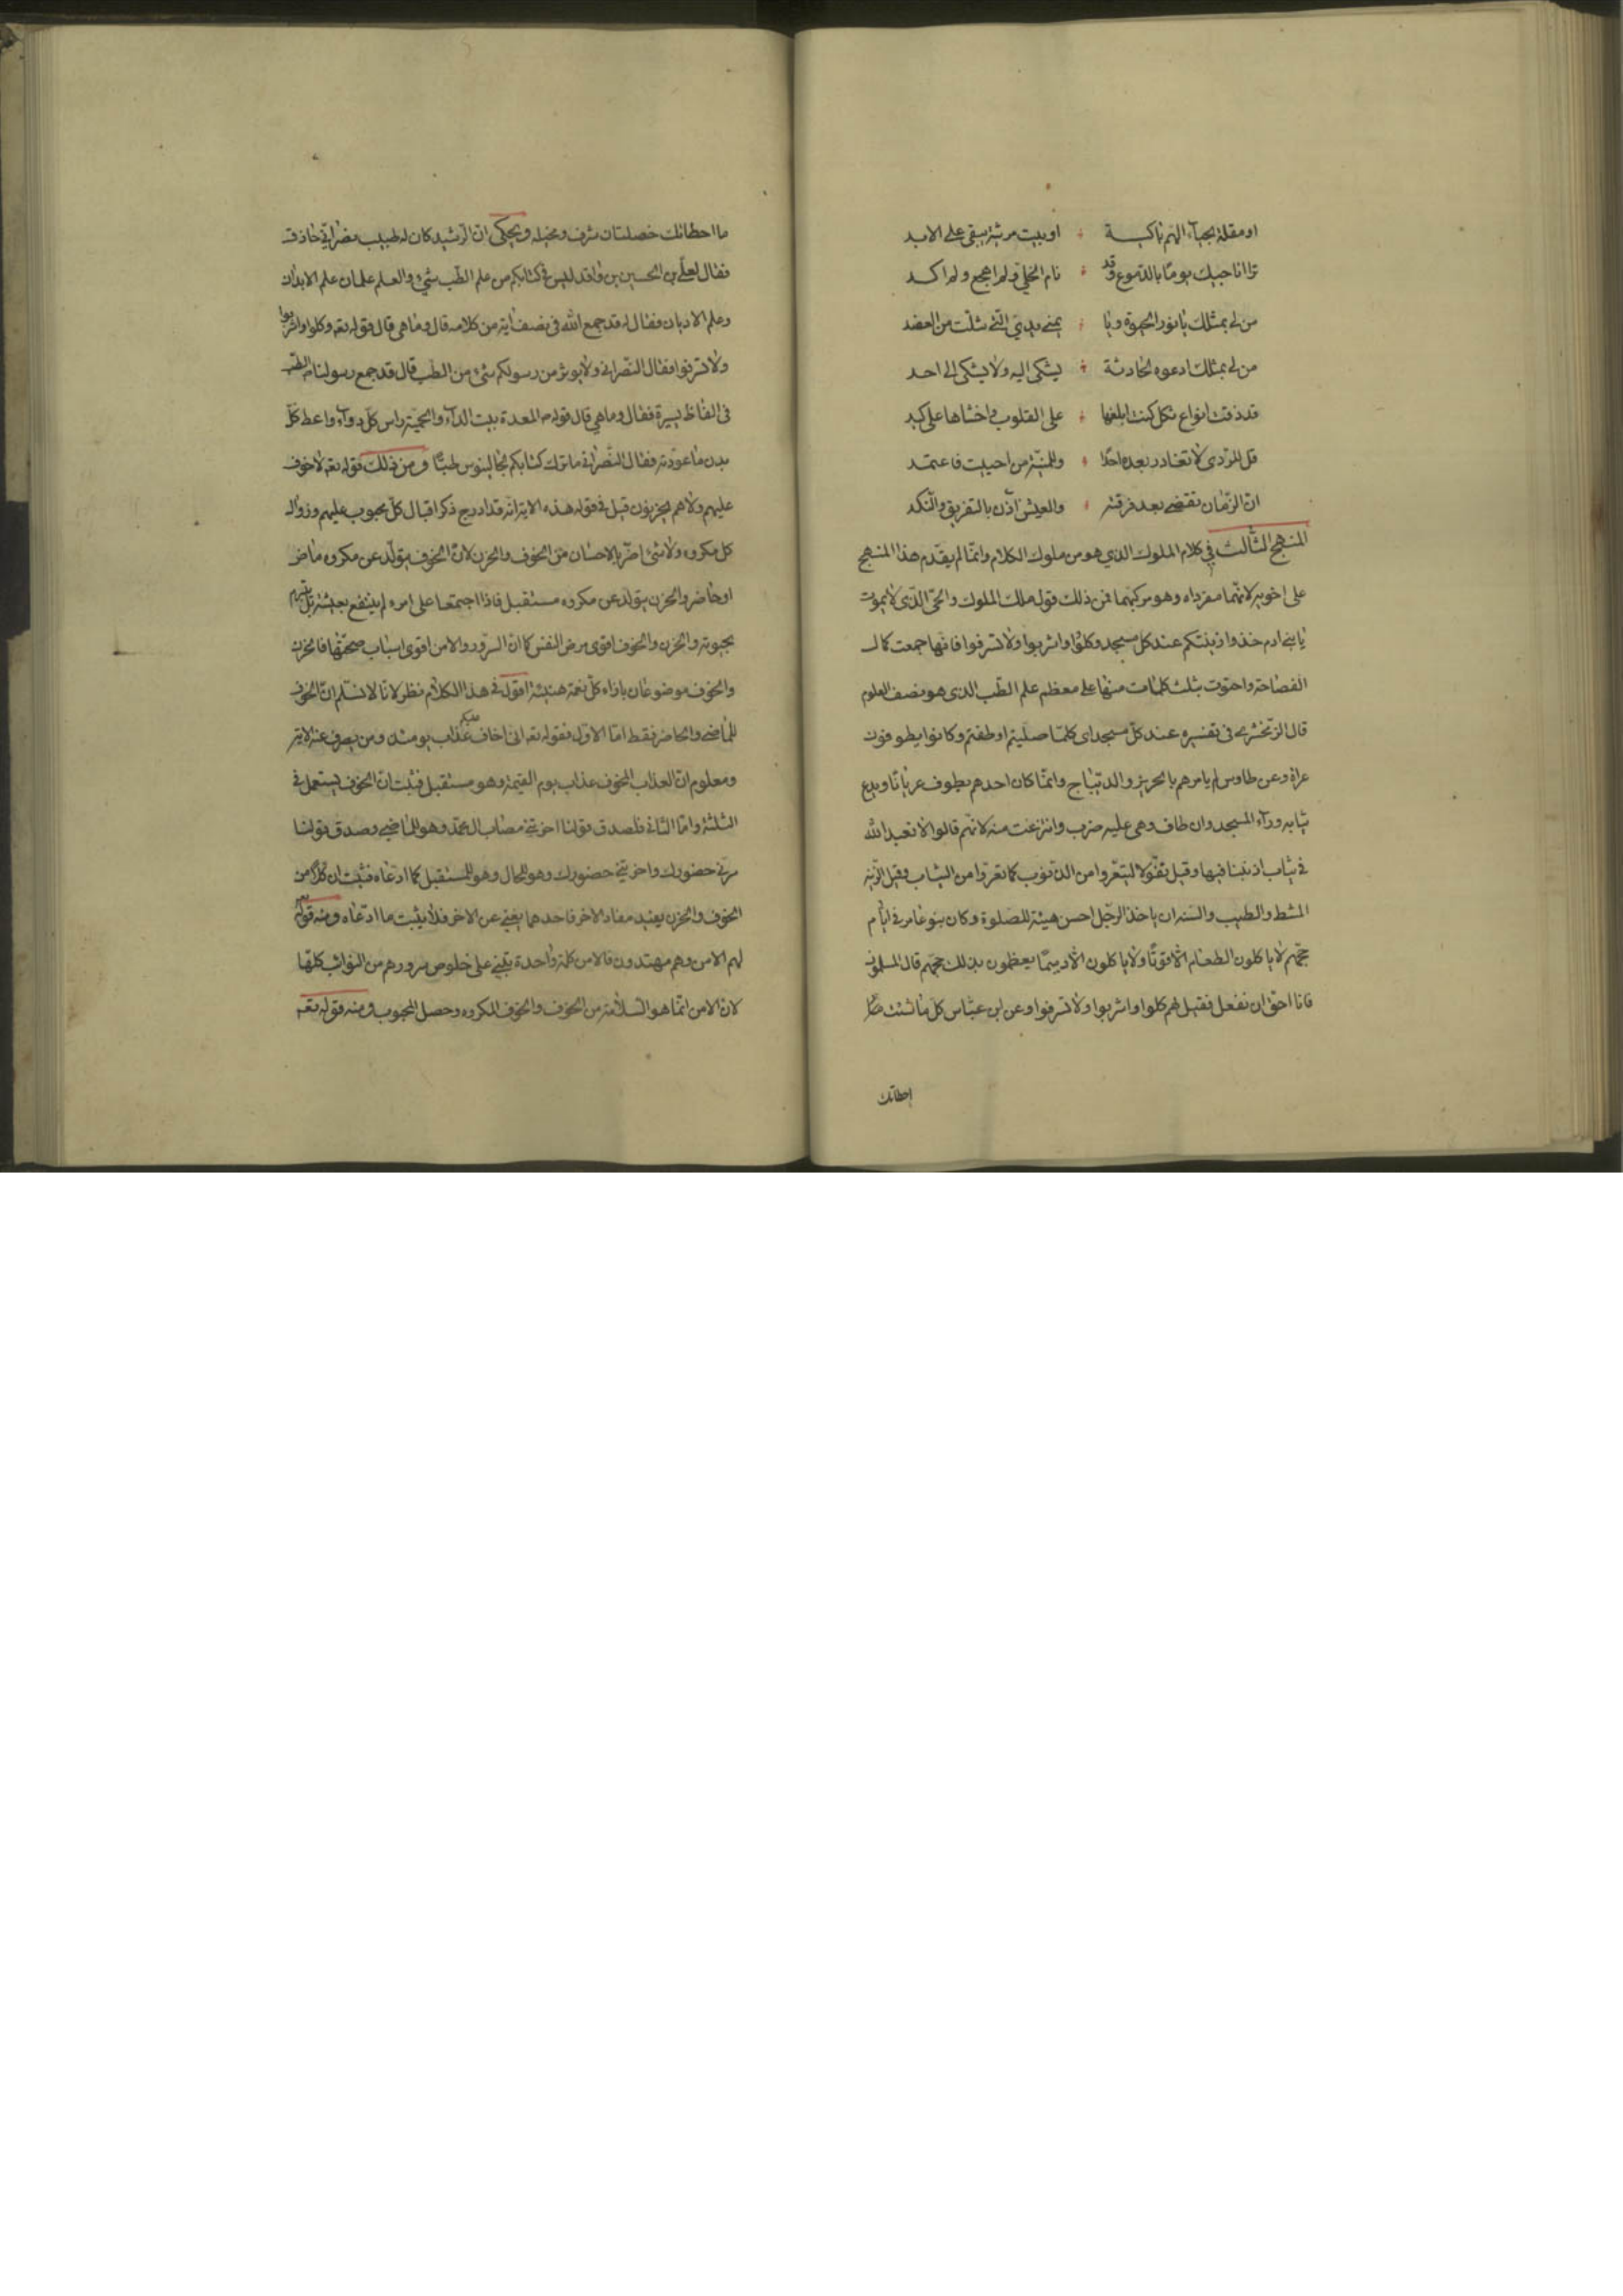 او مقلة بحياء الهم باكية ∴ او بيت مرثية يبقى على الابد
انا اناجيك يوما بالدموع وقد ∴ نام الخلي ولم اهجع ولم اكد
من لي بمثلك يا نور الحيوة ويا ∴ يمنى يدي التي شلت من العضد
من لي بمثلك ادعوه لحادثة ∴ يشكى اليه ولا يشكى الى احد
قد ذقت انواع ثكل كنت ابلغها ∴ على القلوب واخشاها على كبد
قل للردى لا تغادر بعده احدا ∴ وللمنية من احببت فاعتمد
ان الزمان تقضى بعد فرقته ∴ والعيش اذن بالتفريق والنكد
المنهج الثالث في كلام الملوك الذي هو من ملوك الكلام وانما لم يقدم هذا المنهج
على اخويه لانهما مفرداه وهو مركبهما فمن ذلك قوله ملك الملوك والحي الذي لا يموت
يا بني ادم خذوا زينتكم عند كل مسجد وكلوا واشربوا ولا تسرفوا فانها جمعت كمال
الفصاحة واحتوت بثلث كلمات منها على معظم علم الطب الذي هو نصف العلوم
قال الزمخشري في تفسيره عند كل مسجد اى كلما صليتم او طفتم وكانوا يطوفون
عراة وعن طاوس لم يامرهم بالحرير والديباج وانما كان احدهم يطوف عريانا ويدع
ثيابه وراء المسجد وان طاف وهي عليه ضرب وانتزعت منه لانهم قالوا لا نعبد الله
في ثياب اذنبنا فيها وقيل تفؤلا ليتعروا من الذنوب كما تعروا من الثياب وقيل الزينة
المشط والطيب والسنة ان ياخذ الرجل احسن هيئة للصلوة وكان بنو عامر في ايام
حجهم لا ياكلون الطعام الا قوتا ولا ياكلون الا دسما يعظمون بذلك حجهم قال المسلمون
فانا احق ان نفعل فقيل لهم كلوا واشربوا ولا تسرفوا وعن ابن عباس كل ما شئت
اخطاتك
ما اخطاتك خصلتان سرف ومخيلة ويحكى ان الرشيد كان له طبيب نصراني حاذق
فقال لعلي بن الحسين بن واقد ليس في كتابكم من علم الطب شيء والعلم علمان علم الابدان
وعلم الاديان فقال له قد جمع الله في نصف اية من كلامه قال وما هي قال قوله تعه وكلوا واشربوا
ولا تسرفوا فقال النصراني ولا يوثر من رسولكم شيء من الطب قال قد جمع رسولنا الطب
في الفاظ يسيرة فقال وما هي قال قوله المعدة بيت الداء والحمية راس كل دواء واعط كل
بدن ما عودته فقال النصراني ما ترك كتابكم لجالينوس طبا ومن ذلك قوله تعه لا خوف
عليهم ولا هم يحزنون قيل في قوله هذه الاية انه قد ادرج ذكر اقبال كل محبوب عليهم وزوال
كل مكروه ولا شيء اضر بالاحسان من الخوف والحزن لان الخوف يتولد عن مكروه ماض
او حاضر والحزن يتولد عن مكروه مستقبل فاذا اجتمعا على امره لم ينتفع بعيشه بل
والحزن والخوف اقوى مرض النفس كما ان السرور والامن اقوى اسباب صحتها فالحزن
والخوف موضوعان بازاء كل نعمة هنيئة اقول في هذا الكلام نظر لانا لا نسلم ان الخوف
للماضي والحاضر فقط اما الاول فقوله تعه اني اخاف عليكم عذاب يومئذ ومن يصرف عنه الاية
ومعلوم ان العذاب المخوف عذاب يوم القيمة وهو مستقبل فثبت ان الخوف يستعمل في
الثلثة واما الثاني فلصدق قولنا احزنني مصاب ال محمد وهو للماضي وصدق قولنا
حضورك واحزنني حضورك وهو للحال وهو للمستقبل كما ادعاه فثبت ان كلا من
الخوف والحزن يفيد مفاد الاخر فاحدهما يغني عن الاخر فلا يثبت ما ادعاه ومنه قوله تعه
لهم الامن وهم مهتدون فالامن كلمة واحدة تنبئ على خلوص سرورهم من النوائب كلها
لان الامن انما هو السلامة من الخوف والخوف المكروه وحصل المحبوب ومنه قوله تعه